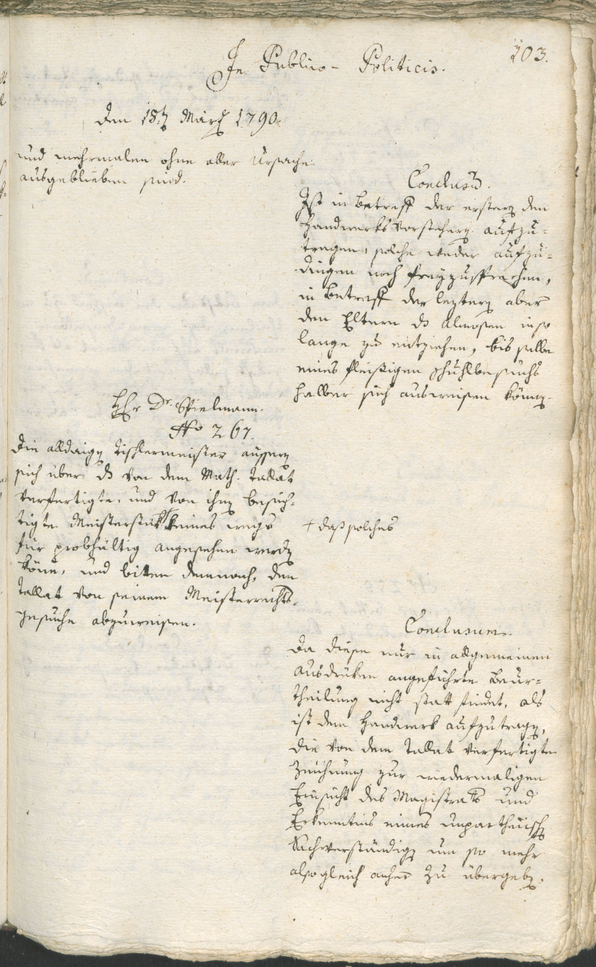 103.
In Publico-Politicis.
den 18t März 1790.
und mehrmalen ohne aller Ursache
ausgeblieben sind.
Conclus.
Ist in betreff der erstern den
Handwerks Vorstehern aufzu-
tragen, solche weder aufzu-
dingen noch freyzusprechen,
in betreff der leztern aber
den Eltern ds Almosen in so
lange zu entziehen, bis selbe
eines fleißigen Schuhlbesuchs
halber sich ausweisen könen.
Hr Dr Spielmann.
No 267.
Die alldaign Tischlermeister aussern
sich über ds von dem Math. Tallat
verfertigte, und von ihnen besich-
tigte Meisterstük + keines wegs
für probhältig angesehen werdn
köne, und bitten demnach, den
Tallat von seinem Meisterrechts
gesuche abzuweisen.
+ daß solches
Conclusum.
Da diese nur in allgemeinen
Ausdrüken angeführte Beur-
theilung nicht statt findet, als
ist dem Handwerk aufzutragn,
die von dem Tallat verfertigte
Zeichnung zur wiedermaligen
Einsicht des Magistrats und
Erkenntnis eines unpartheiisch
Sachverständign um so mehr
alsogleich anher zu übergebn.